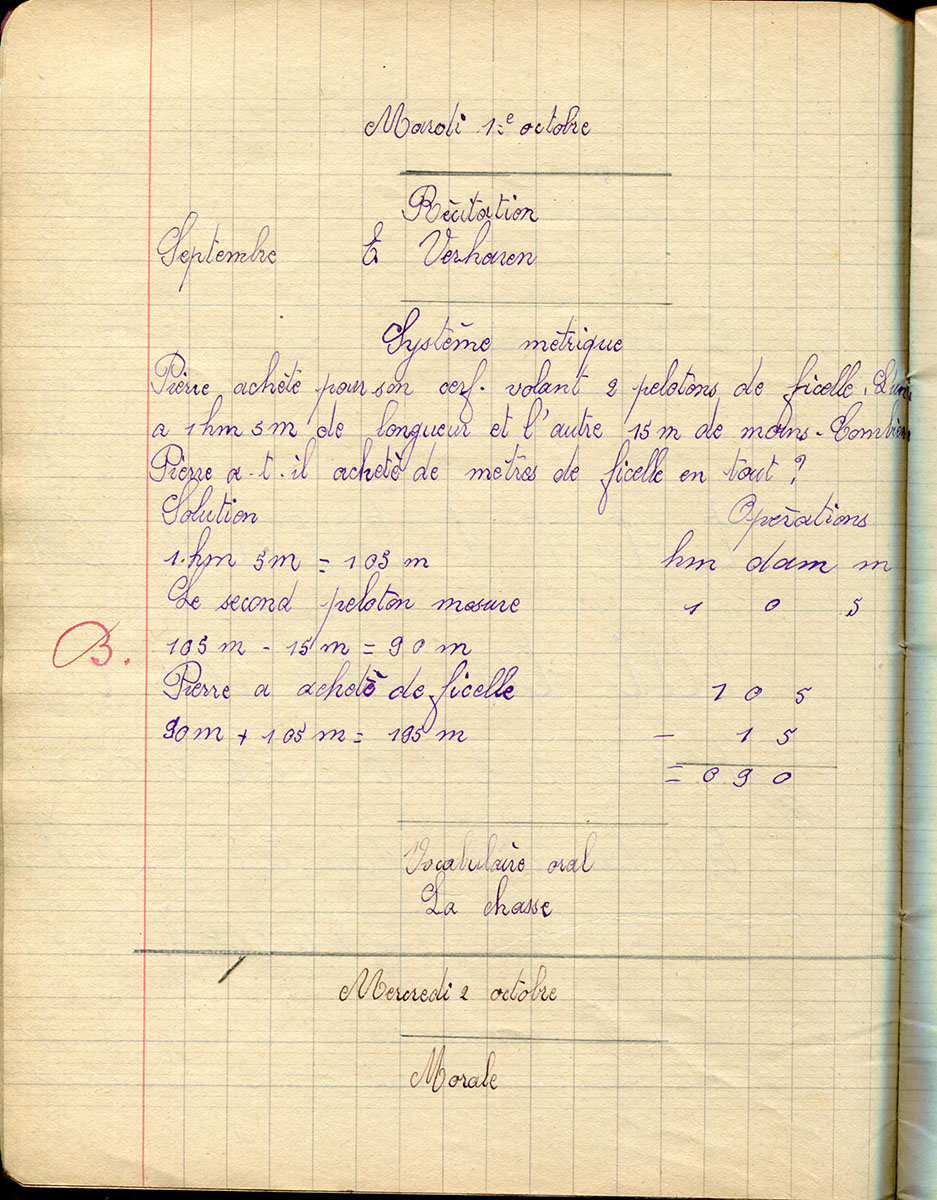 Mardi 1e octobre
Récitation
Septembre E Verharen
Système métrique
Pierre achète pour son cerf-volant 2 pelotons de ficelle. L'un
a 1 hm 5 m de longueur et l'autre 15 m de moins. Combien
Pierre a-t-il acheté de mètres de ficelle en tout ?
Solution Opérations
1 hm 5 m = 105 m hm dam m
Le second peloton mesure 1 0 5
B. 105 m - 15 m = 90 m
Pierre a acheté de ficelle 1 0 5
90 m + 105 m = 195 m - 1 5
= 0 9 0
Vocabulaire oral
La chasse
Mercredi 2 octobre
Morale